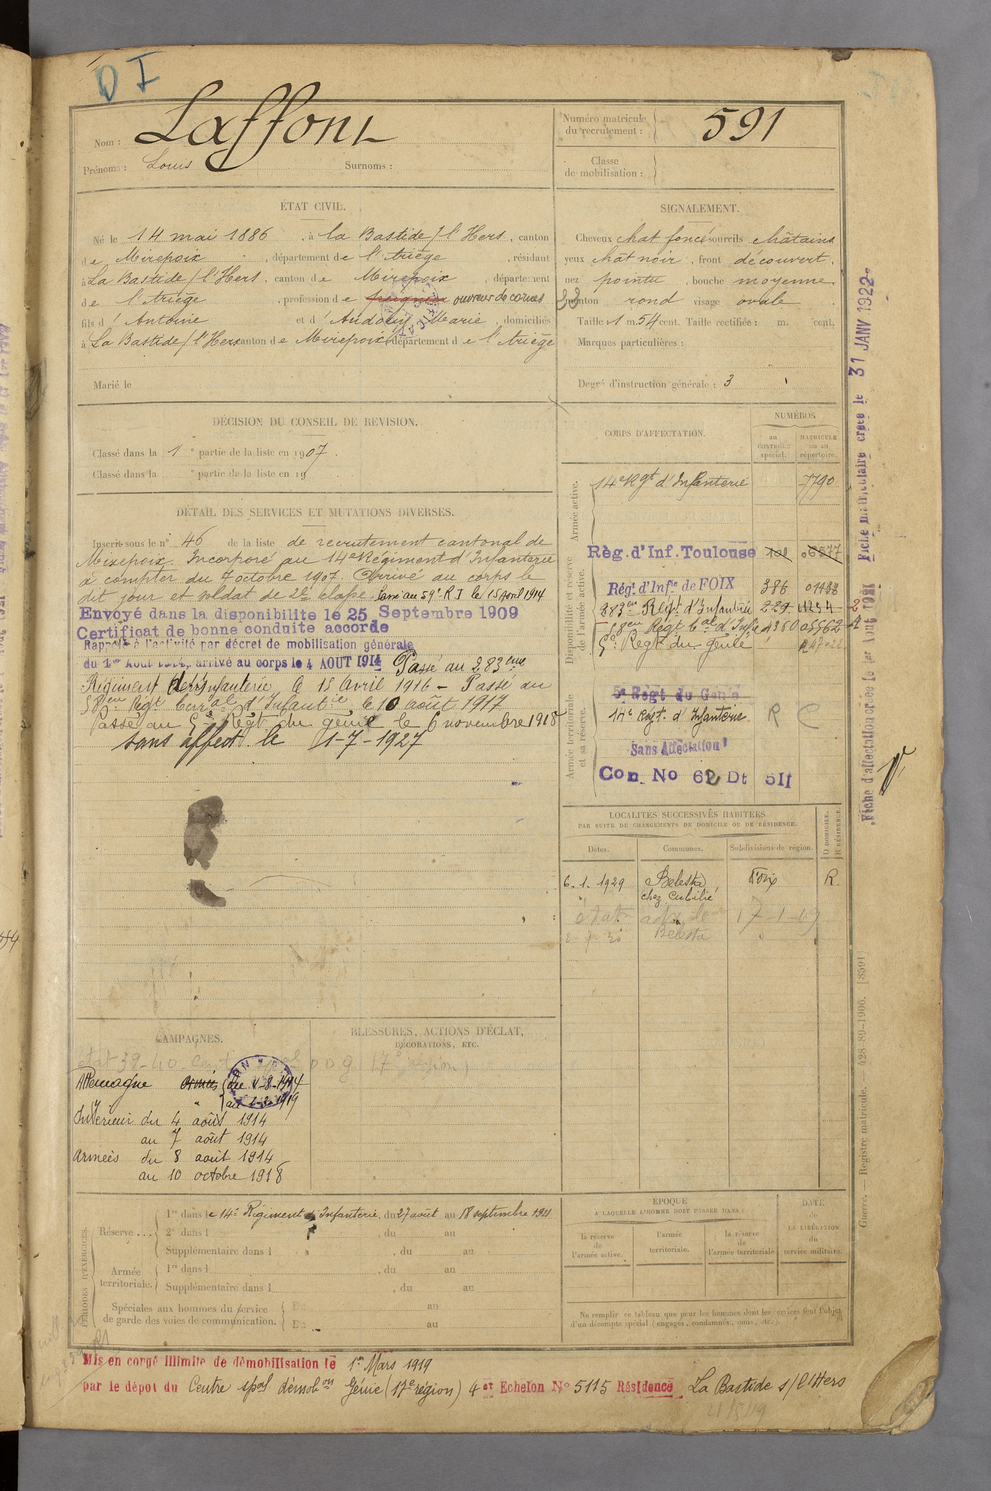 D I
Nom : Laffont
Prénoms : Louis Surnoms :
Numéro matricule
du recrutement : 591
Classe
de mobilisation :
ÉTAT CIVIL.
Né le 14 mai 1886, à la Bastide s/ l'Hers, canton
de Mirepoix, département de l'Ariège, résidant
à La Bastide s/ l'Hers, canton de Mirepoix, département
de l'Ariège, profession de peignier ouvrier de cornes
fils d' Antoine et d' Audouy Marie, domiciliés
à La Bastide s/ l'Hers canton de Mirepoix département de l'Ariège
Marié le
SIGNALEMENT.
Cheveux chat foncé sourcils châtains
yeux chat noir, front découvert,
nez pointu, bouche moyenne
menton rond visage ovale
Taille 1 m. 54 cent. Taille rectifiée : m. cent.
Marques particulières :
Degré d'instruction générale : 3
DÉCISION DU CONSEIL DE REVISION.
Classé dans la 1 partie de la liste en 1907.
Classé dans la partie de la liste en 19
DÉTAIL DES SERVICES ET MUTATIONS DIVERSES.
Inscrit sous le n° 46 de la liste de recrutement cantonal de
Mirepoix. Incorporé au 14e Régiment d'Infanterie
à compter du 7 octobre 1907. Arrivé au corps le
dit jour et soldat de 2e classe. Passé au 59e R.I le 15 Avril 1914
Envoyé dans la disponibilite le 25 Septembre 1909
Certificat de bonne conduite accorde
Rappelé à l'activité par décret de mobilisation générale
du 1er Août 1914, arrivé au corps le 4 AOUT 1914 Passé au 283eme
Régiment d'Infanterie le 15 Avril 1916 - Passé au
58eme Régt Terral d'Infantie, le 10 août 1917
Passé au 5e Régt du génie le 6 novembre 1918
sans affect. le 1-7-1927
CORPS D'AFFECTATION.
NUMÉROS
au
CONTRÔLE
spécial.
MATRICULE
ou au
répertoire.
Armée active.
14e Rgt d'Infanterie 7790
Disponibilité et réserve
de l'armée active.
Rég. d'Inf. Toulouse
Rég. d'Infie de FOIX 386
283eme Régt d'Infanterie
5e Régt du génie
Armée territoriale
et sa réserve.
5e Régt du Génie
14e Régt. d'Infanterie R C
Sans Affectation
Con. No 62 Dt 511
LOCALITÉS SUCCESSIVES HABITÉES
PAR SUITE DE CHANGEMENTS DE DOMICILE OU DE RÉSIDENCE.
Dates. Communes. Subdivisions de région. D DOMICILE. R RÉSIDENCE.
6.1.1929 Belesta Foix R
chez Cubilié
Belesta
CAMPAGNES.
BLESSURES, ACTIONS D'ÉCLAT,
DÉCORATIONS, ETC.
Allemagne
Intérieur du 4 août 1914
au 7 août 1914
Armées du 8 août 1914
au 10 octobre 1918
PÉRIODES D'EXERCICES.
Réserve ...
1re dans le 14e Régiment d'Infanterie, du 27 août au 18 septembre 1911
2e dans l , du au
Supplémentaire dans l , du au
Armée
territoriale.
1re dans l , du au
Supplémentaire dans l , du au
Spéciales aux hommes du service
de garde des voies de communication.
Du au
Du au
ÉPOQUE
À LAQUELLE L'HOMME DOIT PASSER DANS :
la réserve
de
l'armée active.
l'armée
territoriale.
la réserve
de
l'armée territoriale
DATE
de
LA LIBÉRATION
du
service militaire.
Ne remplir ce tableau que pour les hommes dont les services font l'objet
d'un décompte spécial (engagés, condamnés, omis, etc.)
Mis en congé illimité de démobilisation le 1er Mars 1919
par le dépot du Centre spal démobon Génie (17e région) 4e Echelon No 5115 Résidence La Bastide s/ l'Hers
Fiche matriculaire créée le 31 JANV 1922
Fiche d'affectation créée le 1er
Guerre. — Registre matricule. — 428-89-1906. [8591]